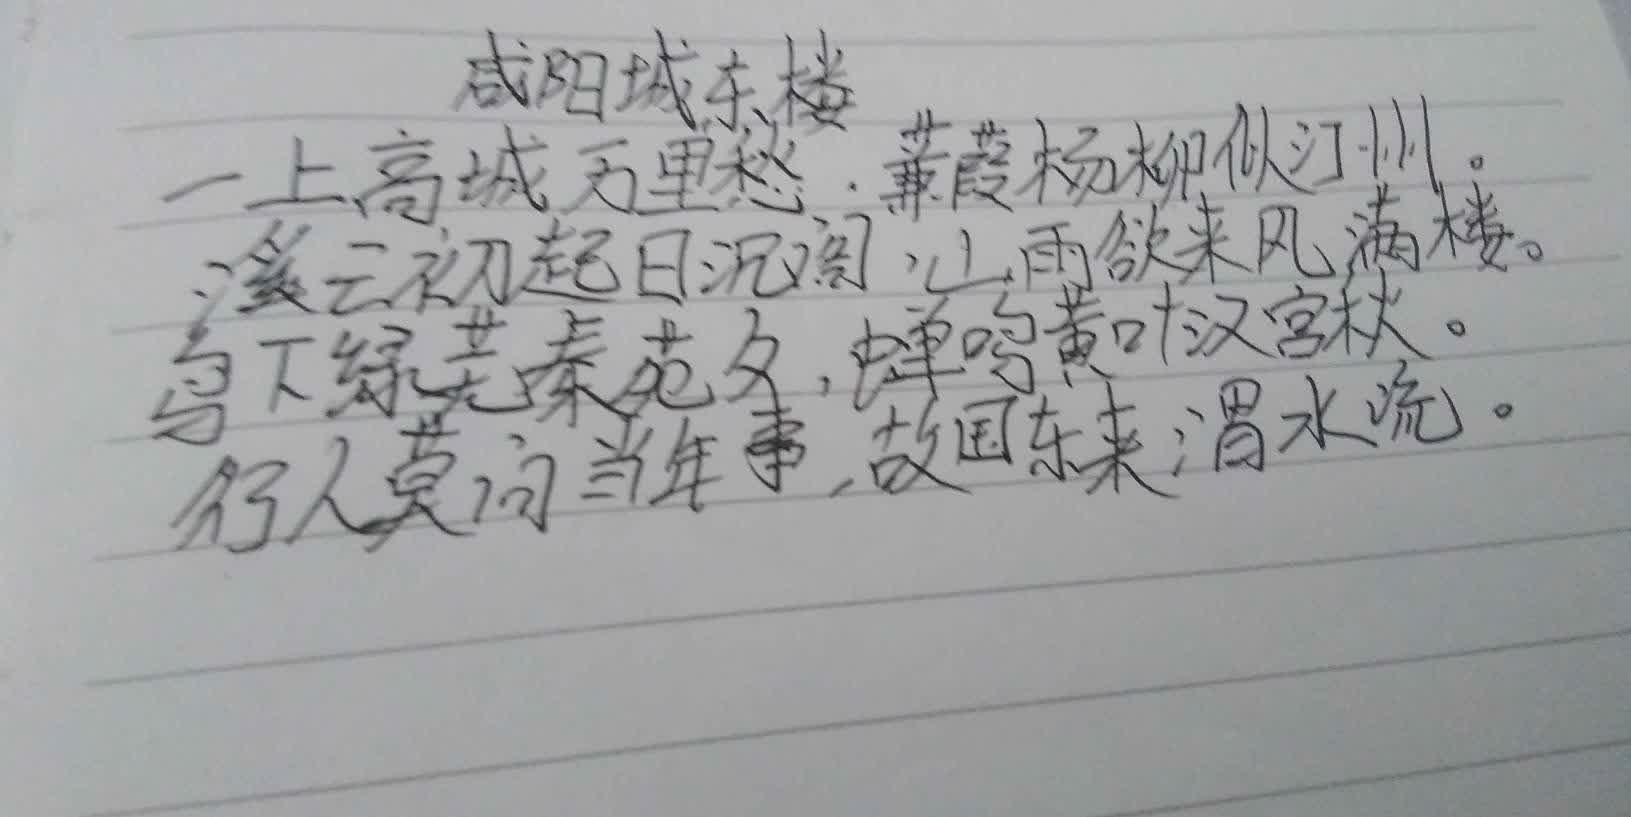 咸阳城东楼
一上高城万里愁，蒹葭杨柳似汀州。
溪云初起日沉阁，山雨欲来风满楼。
鸟下绿芜秦苑夕，蝉鸣黄叶汉宫秋。
行人莫问当年事，故国东来渭水流。